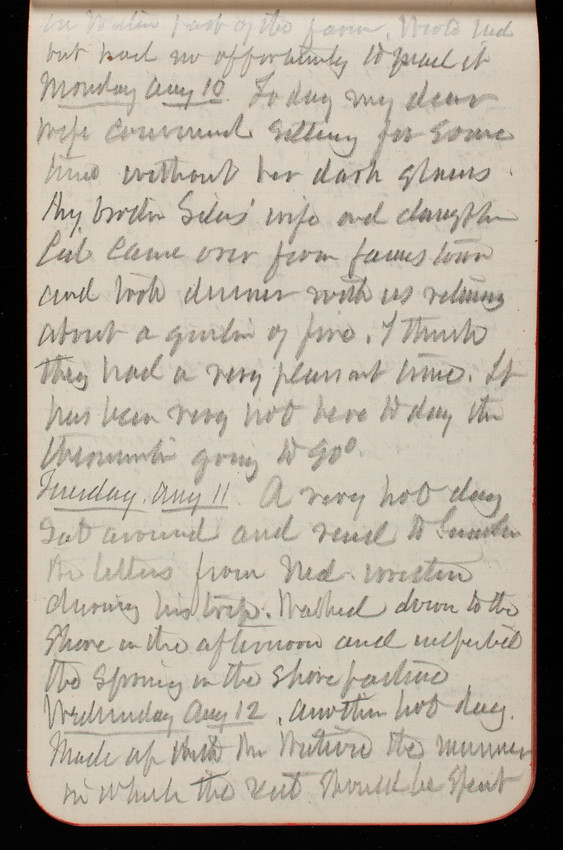 in Western part of the farm. Wrote Ned
but had no opportunity to mail it
Monday Aug 10. To day my dear
wife commenced sitting for some
time without her dark glasses.
My brother Silas' wife and daughter
came over from Jamestown
and took dinner with us returning
about a quarter of five. I think
they had a very pleasant time. It
has been very hot here to day the
thermometer going to 90°.
Tuesday. Aug 11. A very hot day
Sat around and read to
the letters from Ned written
during his trip. Walked down to the
Shore in the afternoon and inspected
the Spring in the Shore pasture
Wednesday Aug 12. Another hot day.
Made up with the manner
in which the rest should be Spent